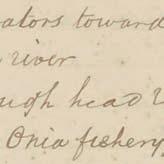 ators toward
river
ugh head
Onia fishery